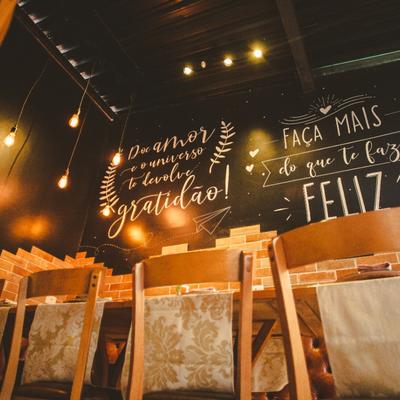 Doe amor
e o universo
te devolve
gratidão!
FAÇA MAIS
do que te faz
FELIZ